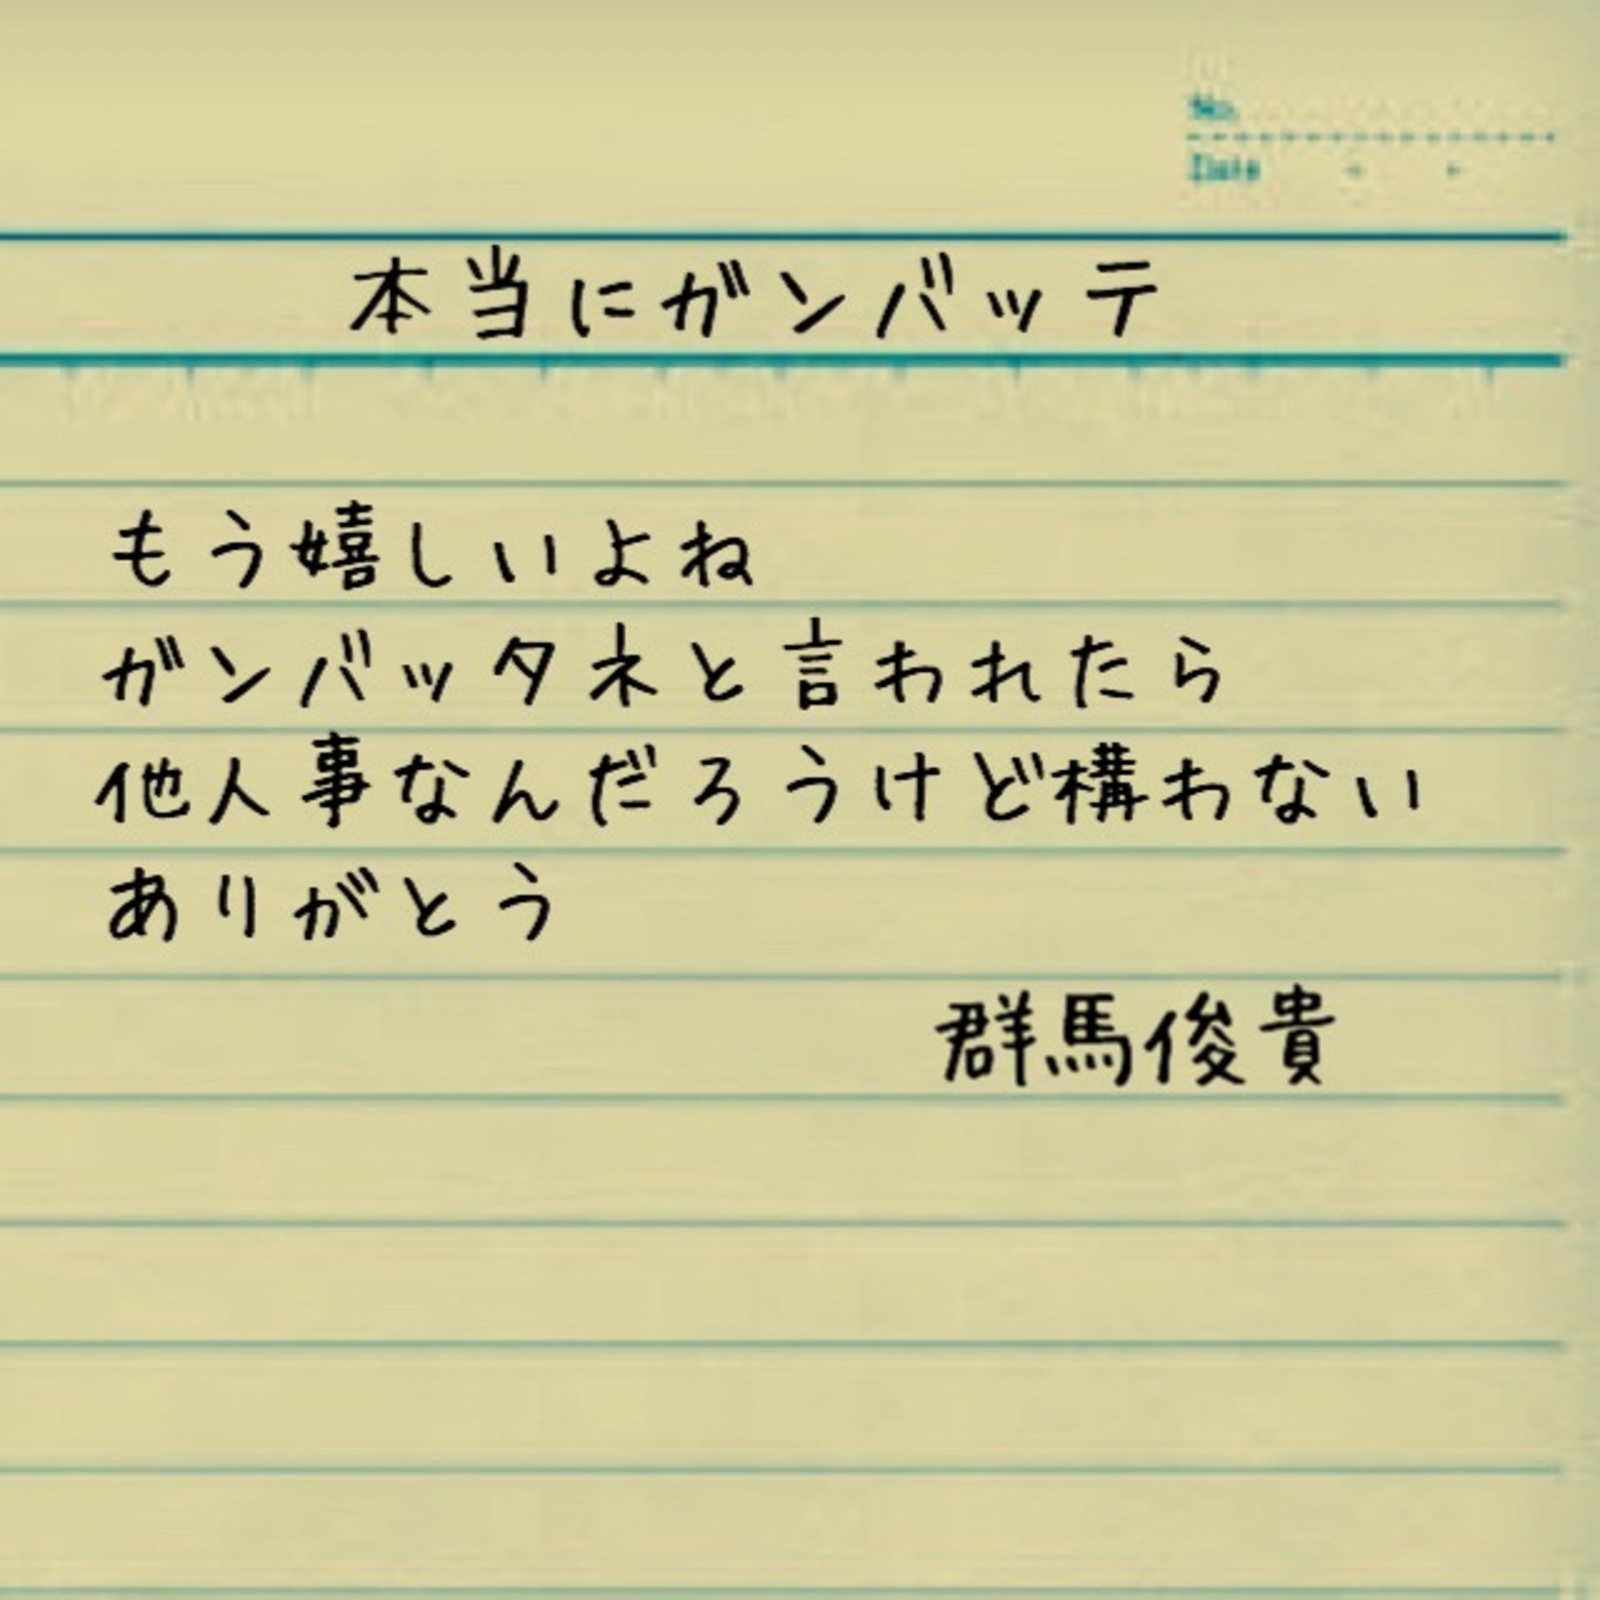 No.
Date
本当にガンバッテ
もう嬉しいよね
ガンバッタネと言われたら
他人事なんだろうけど構わない
ありがとう
群馬俊貴